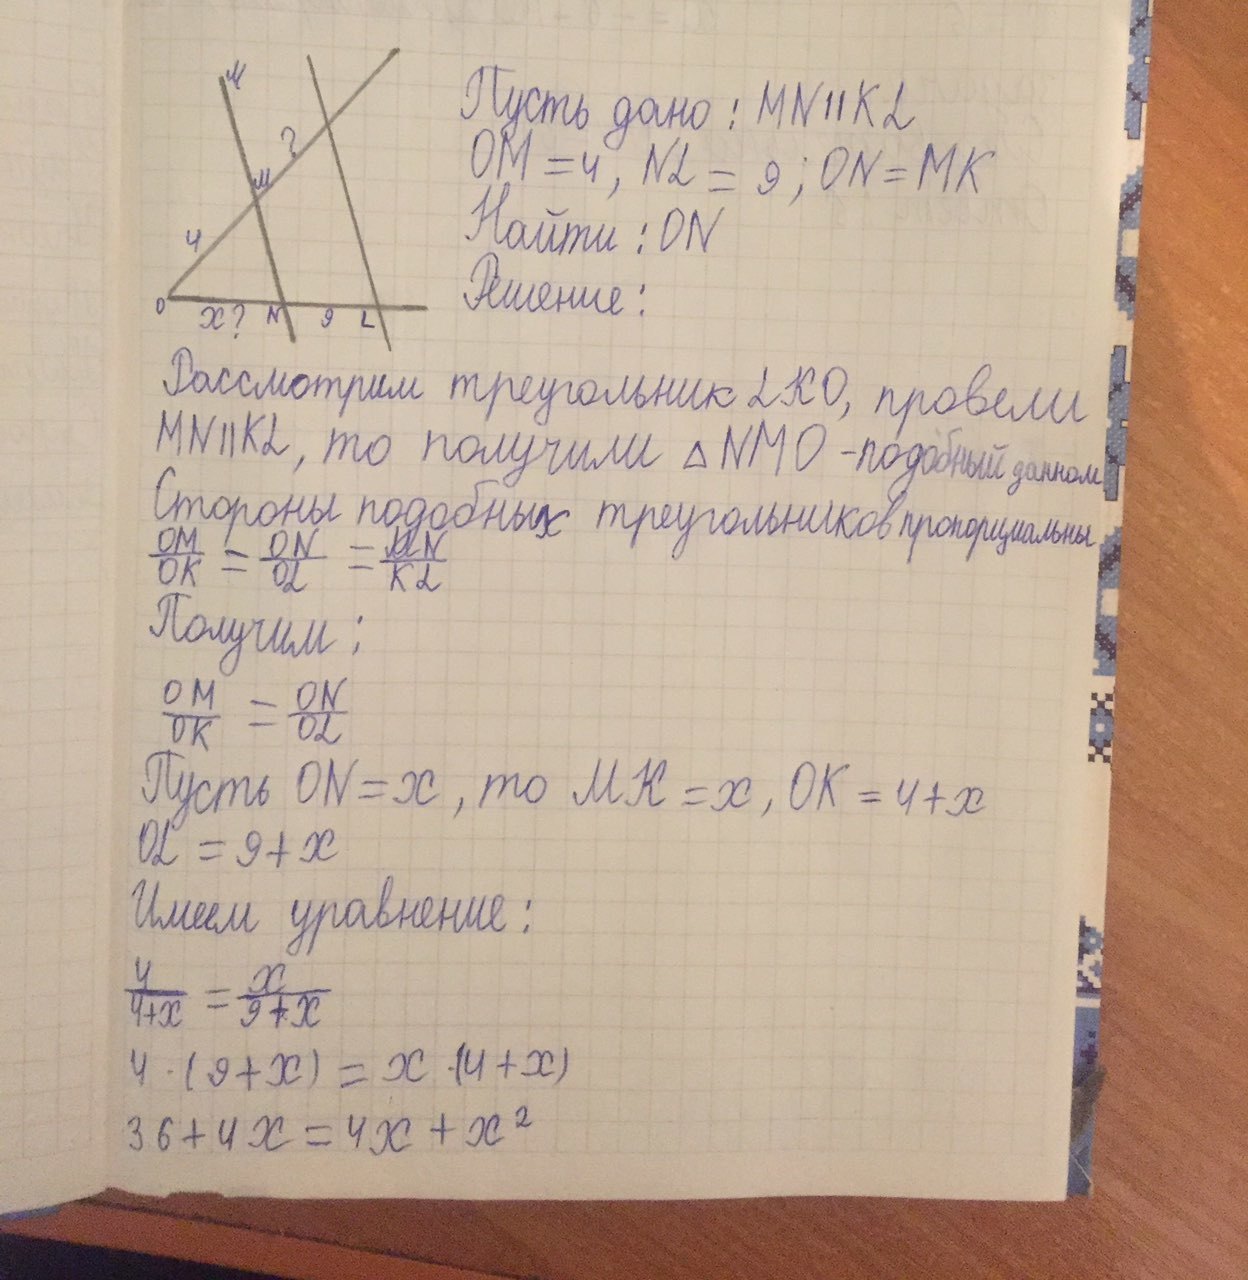 М
?
М
4
O
x?
N
9
L
Пусть дано: MN || KL
OM = 4, NL = 9; ON = MK
Найти: ON
Решение:
Рассмотрим треугольник LKO, провели
MN || KL, то получили △ NMO - подобный данном
Стороны подобных треугольников пропорциальны
OM/OK = ON/OL = MN/KL
Получим:
OM/OK = ON/OL
Пусть ON = x, то MK = x, OK = 4+x
OL = 9+x
Имеем уравнение:
4/4+x = x/9+x
4 · (9+x) = x · (4+x)
36 + 4x = 4x + x²